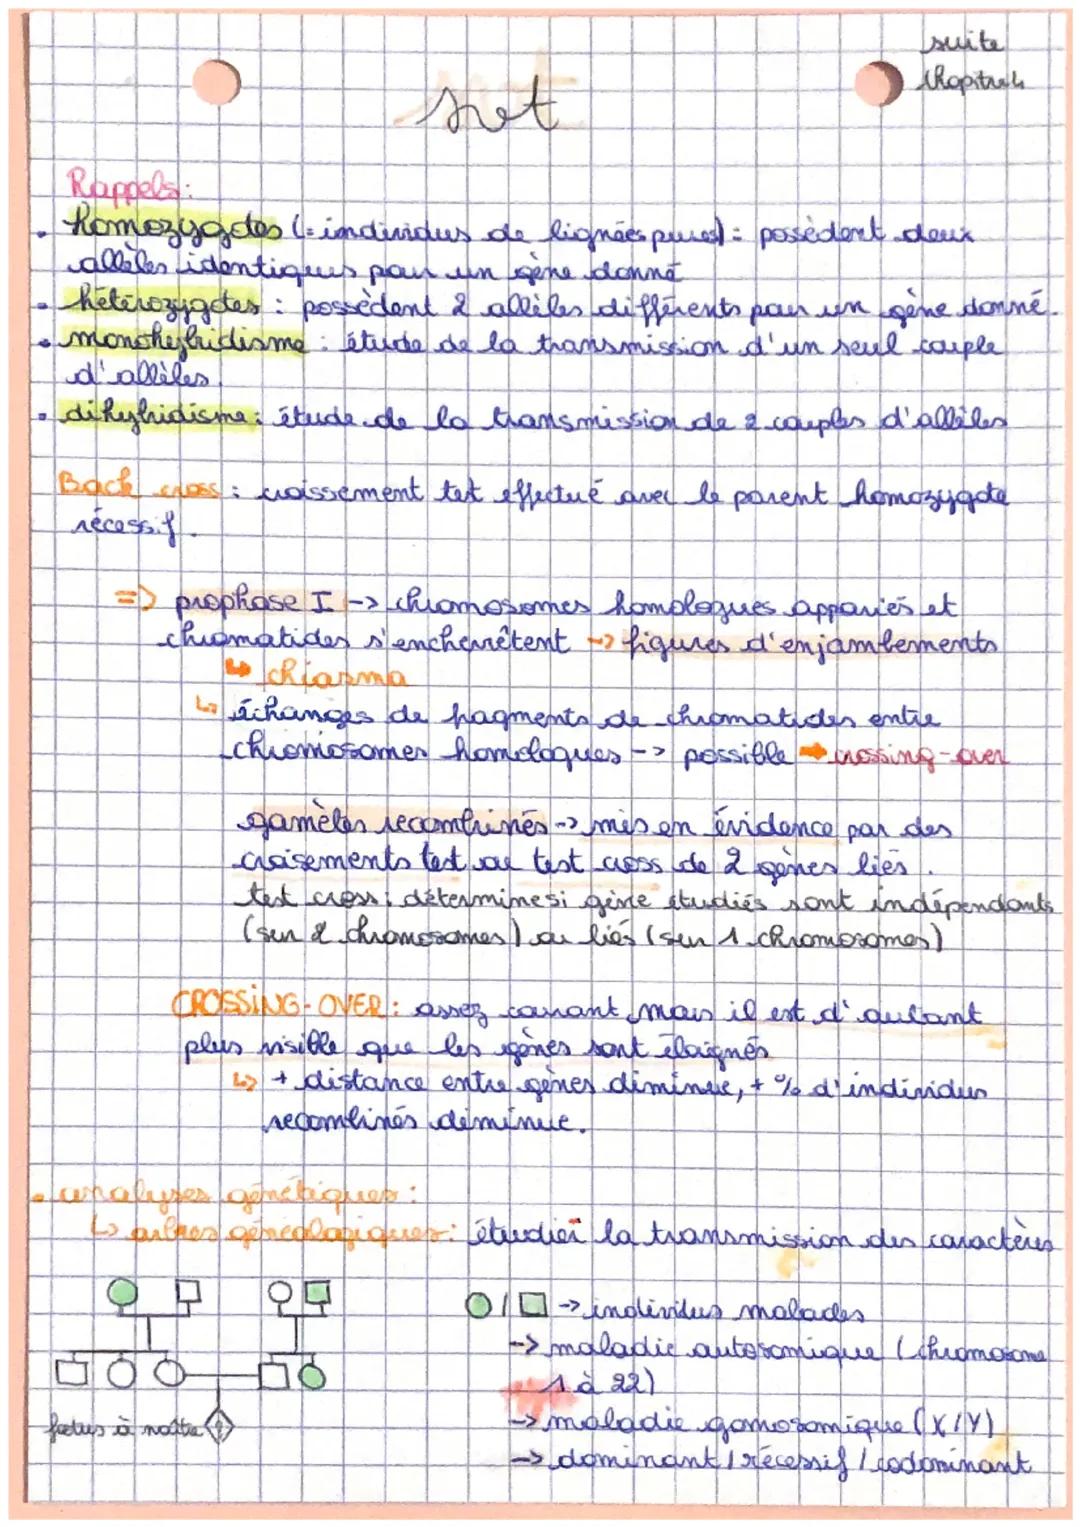 suite
chapitre
svt
Rappels:
• homozygotes (= individus de lignées pures) : possèdent deux
allèles identiques pour un gène donné
• hétérozygotes : possèdent 2 allèles différents pour un gène donné.
• monohybridisme : étude de la transmission d'un seul couple
d'allèles.
• dihybridisme : étude de la transmission de 2 couples d'allèles
Back cross : croissement test effectué avec le parent homozygote
récessif.
=> prophase I -> chromosomes homologues appariés et
chromatides s'enchevêtrent -> figures d'enjambements
↳ chiasma
↳ échanges de fragments de chromatides entre
chromosomes homologues -> possible ➡ crossing-over
gamètes recombinés -> mis en évidence par des
croisements test ou test cross de 2 gènes liés.
test cross : détermine si gène étudiés sont indépendants
(sur 2 chromosomes) ou liés (sur 1 chromosomes)
CROSSING-OVER : assez courant mais il est d'autant
plus visible que les gènes sont éloignés
↳ + distance entre gènes diminue, + % d'individus
recombinés diminue.
• analyses génétiques :
↳ arbres généalogiques : étudier la transmission des caractères
○/□ -> individus malades
-> maladie autosomique (chromosome
1 à 22)
-> maladie gonosomique (X/Y)
-> dominant / récessif / codominant
fœtus à naître ?